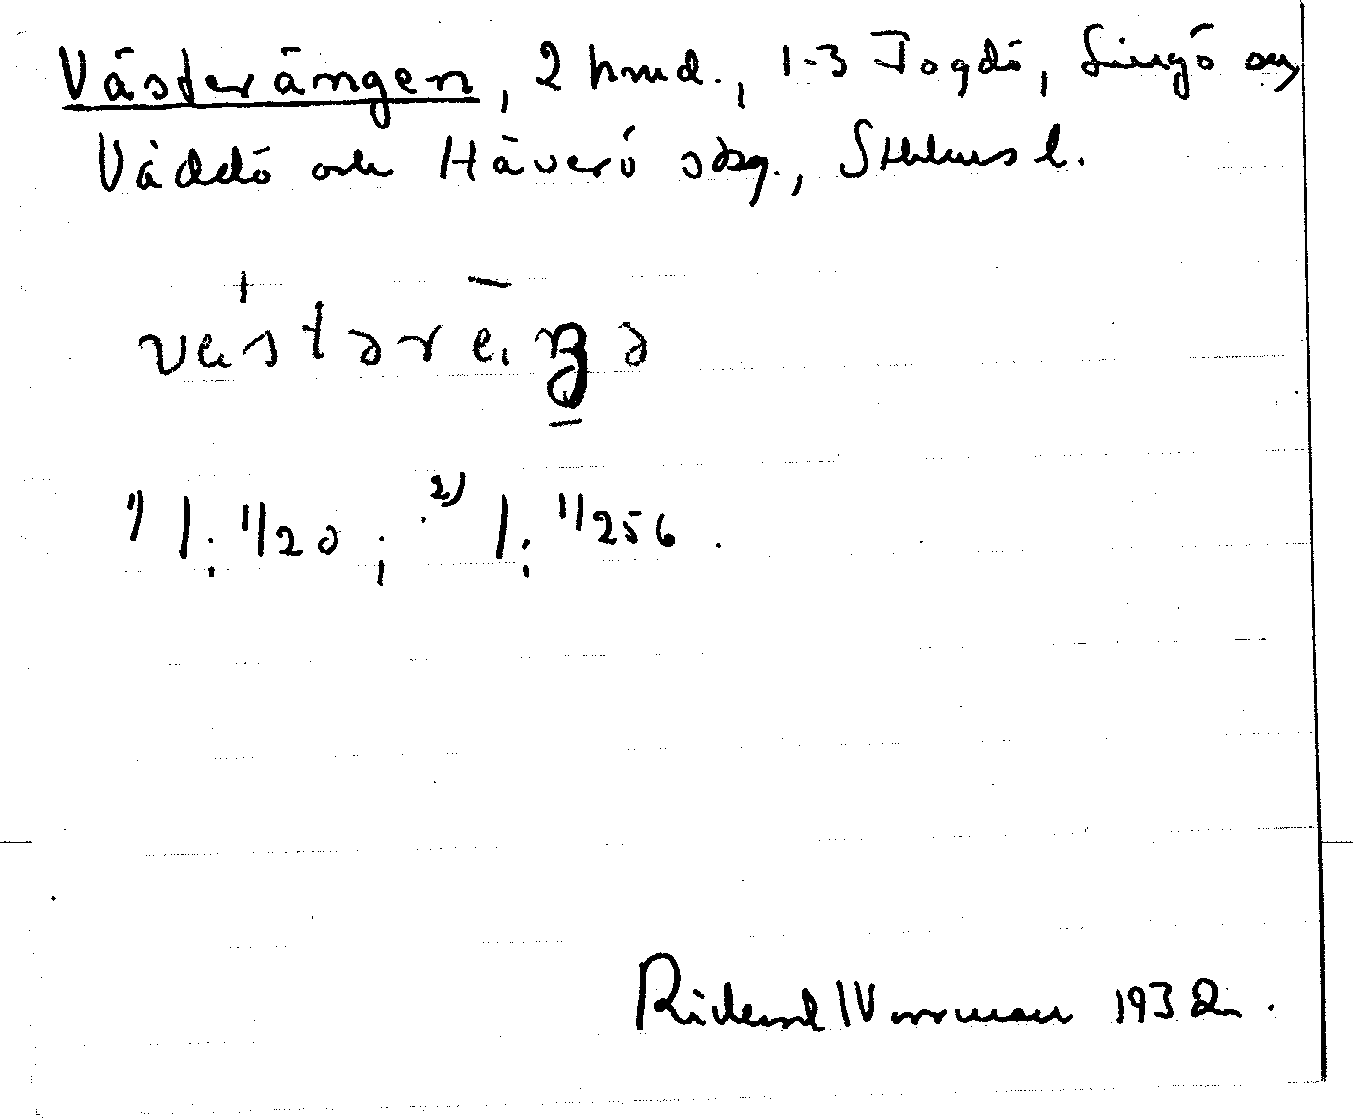 Västerängen, 2 hmd., 1-3 Fogdö, Singö sn,
Väddö och Häverö skg., Sthlms l.
västəreŋə
1) 1: 1/20; 2) 1: 1/256.
Rickard Wornman 1932.